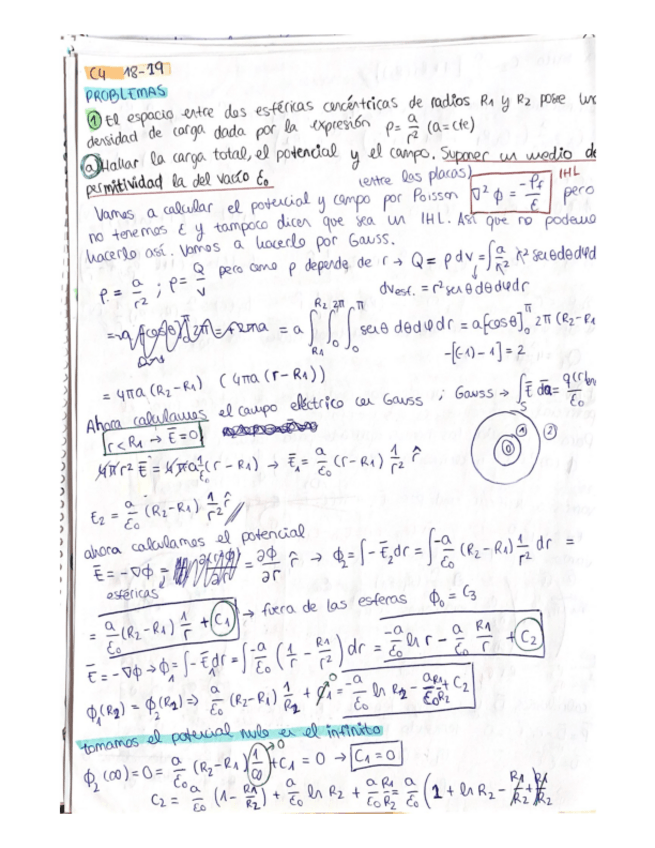 C4 18-19
PROBLEMAS
① El espacio entre dos esféricas concéntricas de radios R1 y R2 posee
densidad de carga dada por la expresión ρ= a/r² (a=cte)
ⓐ Hallar la carga total, el potencial y el campo. Suponer un medio de
permitividad la del vacío ε₀ (entre las placas) IHL
Vamos a calcular el potencial y campo por Poisson ∇²φ = -ρf/ε pero
no tenemos ε y tampoco dicen que sea un IHL. Así que no
hacerlo así. Vamos a hacerlo por Gauss.
ρ = a/r² ; ρ = Q/V pero como ρ depende de r → Q = ρ dv = ∫ a/r² r² senθ dθ dφ d
dv esf. = r² senθ dθ dφ dr
= a ∫R1^R2 ∫0^2π ∫0^π senθ dθ dφ dr = a[cosθ]0^π 2π (R2-R1
-[(-1)-1] = 2
= 4πa (R2-R1) (4πa (r-R1))
Ahora calculamos el campo eléctrico con Gauss ; Gauss → ∫s E̅ da̅ = q(r)/ε₀
r<R1 → E̅=0
0 1 2
4πr² E̅ = 4πa 1/ε₀ (r-R1) → E̅1 = a/ε₀ (r-R1) 1/r² r̂
E2 = a/ε₀ (R2-R1) 1/r² r̂
ahora calculamos el potencial
E̅ = -∇φ = ∂φ/∂r r̂ → φ2 = ∫-E̅2 dr = ∫ -a/ε₀ (R2-R1) 1/r² dr =
esféricas
= a/ε₀ (R2-R1) 1/r + C1 → fuera de las esferas φ0 = C3
E̅ = -∇φ → φ1 = ∫-E̅1 dr = ∫ -a/ε₀ (1/r - R1/r²) dr = -a/ε₀ ln r - a/ε₀ R1/r + C2
φ1(R2) = φ2(R2) ⇒ a/ε₀ (R2-R1) 1/R2 + C1⁰ = -a/ε₀ ln R2 - aR1/ε₀R2 + C2
tomamos el potencial nulo en el infinito
φ2(∞) = 0 = a/ε₀ (R2-R1) 1/∞ →0 + C1 = 0 → C1 = 0
C2 = a/ε₀ (1 - R1/R2) + a/ε₀ ln R2 + a/ε₀ R1/R2 = a/ε₀ (1 + ln R2 - R1/R2 + R1/R2